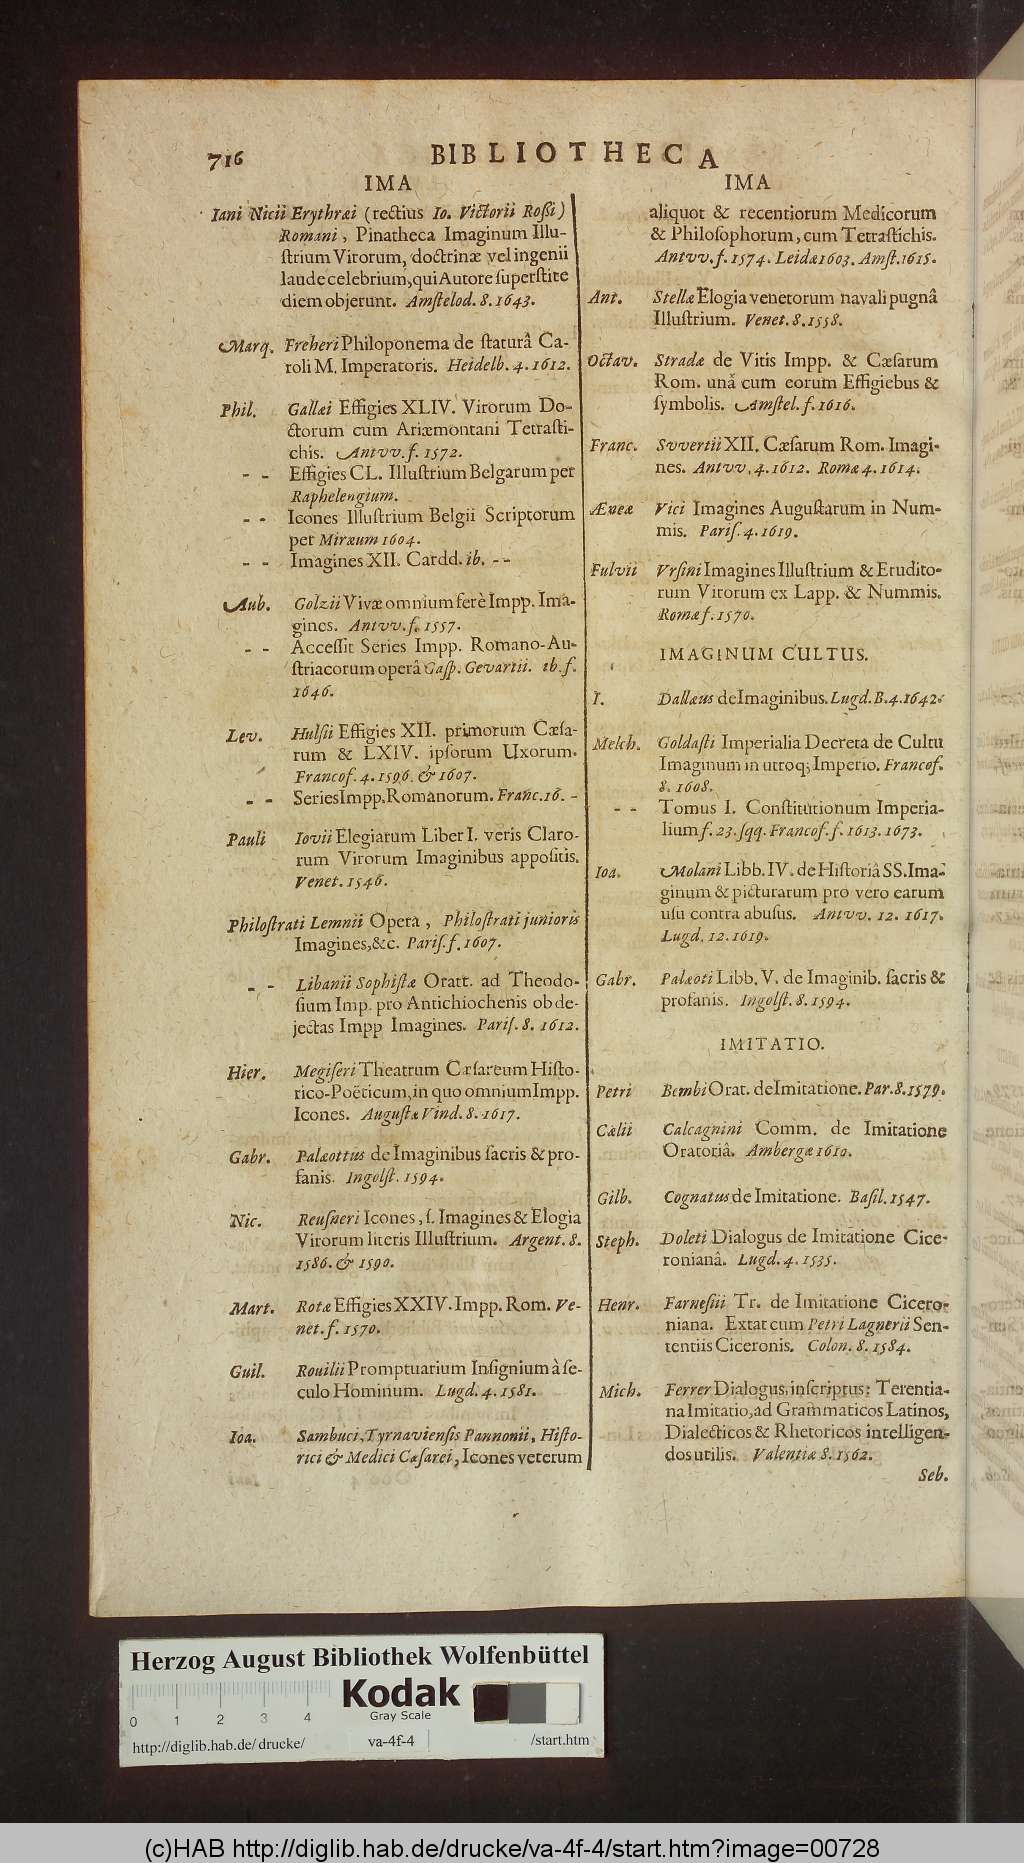 716 BIBLIOTHECA
IMA
Iani Nicii Erythræi (rectius Io. Victorii Roßi)
Romani, Pinatheca Imaginum Illu-
ſtrium Virorum, doctrinæ vel ingenii
laude celebrium, qui Autore ſuperſtite
diem objerunt. Amſtelod. 8. 1643.
Marq. Freheri Philoponema de ſtaturâ Ca-
roli M. Imperatoris. Heidelb. 4. 1612.
Phil. Gallæi Effigies XLIV. Virorum Do-
ctorum cum Ariæmontani Tetraſti-
chis. Antvv. f. 1572.
- - Effigies CL. Illuſtrium Belgarum per
Raphelengium.
- - Icones Illuſtrium Belgii Scriptorum
per Miræum 1604.
- - Imagines XII. Cardd. ib. - -
Aub. Golzii Vivæ omnium ferè Impp. Ima-
gines. Antvv. f. 1557.
- - Acceſſit Series Impp. Romano-Au-
ſtriacorum operâ Caſp. Gevartii. ib. f.
1646.
Lev. Hulſii Effigies XII. primorum Cæſa-
rum & LXIV. ipſorum Uxorum.
Francof. 4. 1596. & 1607.
- - Series Impp. Romanorum. Franc. 16. -
Pauli Iovii Elegiarum Liber I. veris Claro-
rum Virorum Imaginibus appoſitis.
Venet. 1546.
Philoſtrati Lemnii Opera, Philoſtrati junioris
Imagines, &c. Pariſ. f. 1607.
- - Libanii Sophiſtæ Oratt. ad Theodo-
ſium Imp. pro Antichiochenis ob de-
jectas Impp Imagines. Pariſ. 8. 1612.
Hier. Megiſeri Theatrum Cæſareum Hiſto-
rico-Poëticum, in quo omnium Impp.
Icones. Auguſtæ Vind. 8. 1617.
Gabr. Palæottus de Imaginibus ſacris & pro-
fanis. Ingolſt. 1594.
Nic. Reuſneri Icones, ſ. Imagines & Elogia
Virorum literis Illuſtrium. Argent. 8.
1586. & 1590.
Mart. Rotæ Effigies XXIV. Impp. Rom. Ve-
net. f. 1570.
Guil. Rouilii Promptuarium Inſignium à ſe-
culo Hominum. Lugd. 4. 1581.
Ioa. Sambuci, Tyrnavienſis Pannonii, Hiſto-
rici & Medici Cæſarei, Icones veterum
IMA
aliquot & recentiorum Medicorum
& Philoſophorum, cum Tetraſtichis.
Antvv. f. 1574. Leidæ 1603. Amſt. 1615.
Ant. Stellæ Elogia venetorum navali pugnâ
Illuſtrium. Venet. 8. 1558.
Octav. Stradæ de Vitis Impp. & Cæſarum
Rom. unâ cum eorum Effigiebus &
ſymbolis. Amſtel. f. 1616.
Franc. Svvertii XII. Cæſarum Rom. Imagi-
nes. Antvv. 4. 1612. Romæ 4. 1614.
Æneæ Vici Imagines Auguſtarum in Num-
mis. Pariſ. 4. 1619.
Fulvii Vrſini Imagines Illuſtrium & Erudito-
rum Virorum ex Lapp. & Nummis.
Romæ f. 1570.
IMAGINUM CULTUS.
I. Dallæus de Imaginibus. Lugd. B. 4. 1642.
Melch. Goldaſti Imperialia Decreta de Cultu
Imaginum in utroq; Imperio. Francof.
8. 1608.
- - Tomus I. Conſtitutionum Imperia-
lium f. 23. ſqq. Francof. f. 1613. 1673.
Ioa. Molani Libb. IV. de Hiſtoriâ SS. Ima-
ginum & picturarum pro vero earum
uſu contra abuſus. Antvv. 12. 1617.
Lugd. 12. 1619.
Gabr. Palæoti Libb. V. de Imaginib. ſacris &
profanis. Ingolſt. 8. 1594.
IMITATIO.
Petri Bembi Orat. de Imitatione. Par. 8. 1579.
Cælii Calcagnini Comm. de Imitatione
Oratoriâ. Ambergæ 1610.
Gilb. Cognatus de Imitatione. Baſil. 1547.
Steph. Doleti Dialogus de Imitatione Cice-
ronianâ. Lugd. 4. 1535.
Henr. Farneſiii Tr. de Imitatione Cicero-
niana. Extat cum Petri Lagnerii Sen-
tentiis Ciceronis. Colon. 8. 1584.
Mich. Ferrer Dialogus, inſcriptus: Terentia-
na Imitatio, ad Grammaticos Latinos,
Dialecticos & Rhetoricos intelligen-
dos utilis. Valentiæ 8. 1562.
Seb.
Herzog August Bibliothek Wolfenbüttel
Kodak
Gray Scale
0 1 2 3 4
http://diglib.hab.de/drucke/ va-4f-4 /start.htm
(c)HAB http://diglib.hab.de/drucke/va-4f-4/start.htm?image=00728